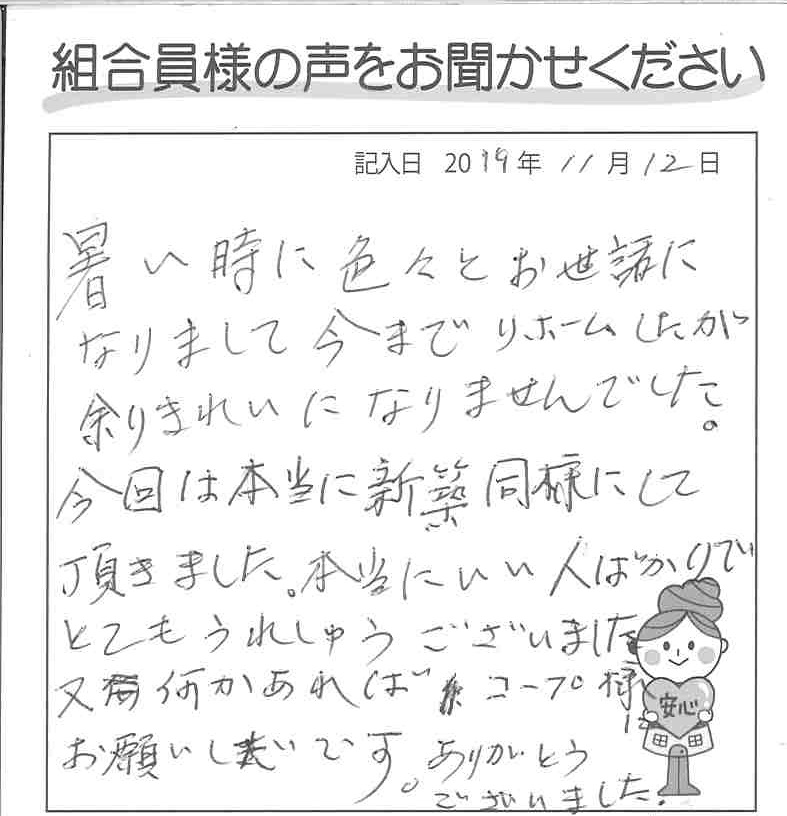 組合員様の声をお聞かせください
記入日 2019年 11月12日
暑い時に色々とお世話に
なりまして今までリホームしたが
余りきれいになりませんでした。
今回は本当に新築同様にして
頂きました。本当にいい人ばかりで
とてもうれしゅうございました
又何かあれば コープ様に
お願いしたいです。ありがとう
ございました。
安心